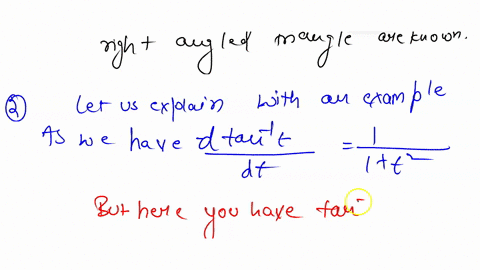 right angled triangle are known.
② Let us explain with an example
As we have d tan⁻¹t / dt = 1 / 1+t²
But here you have tan⁻